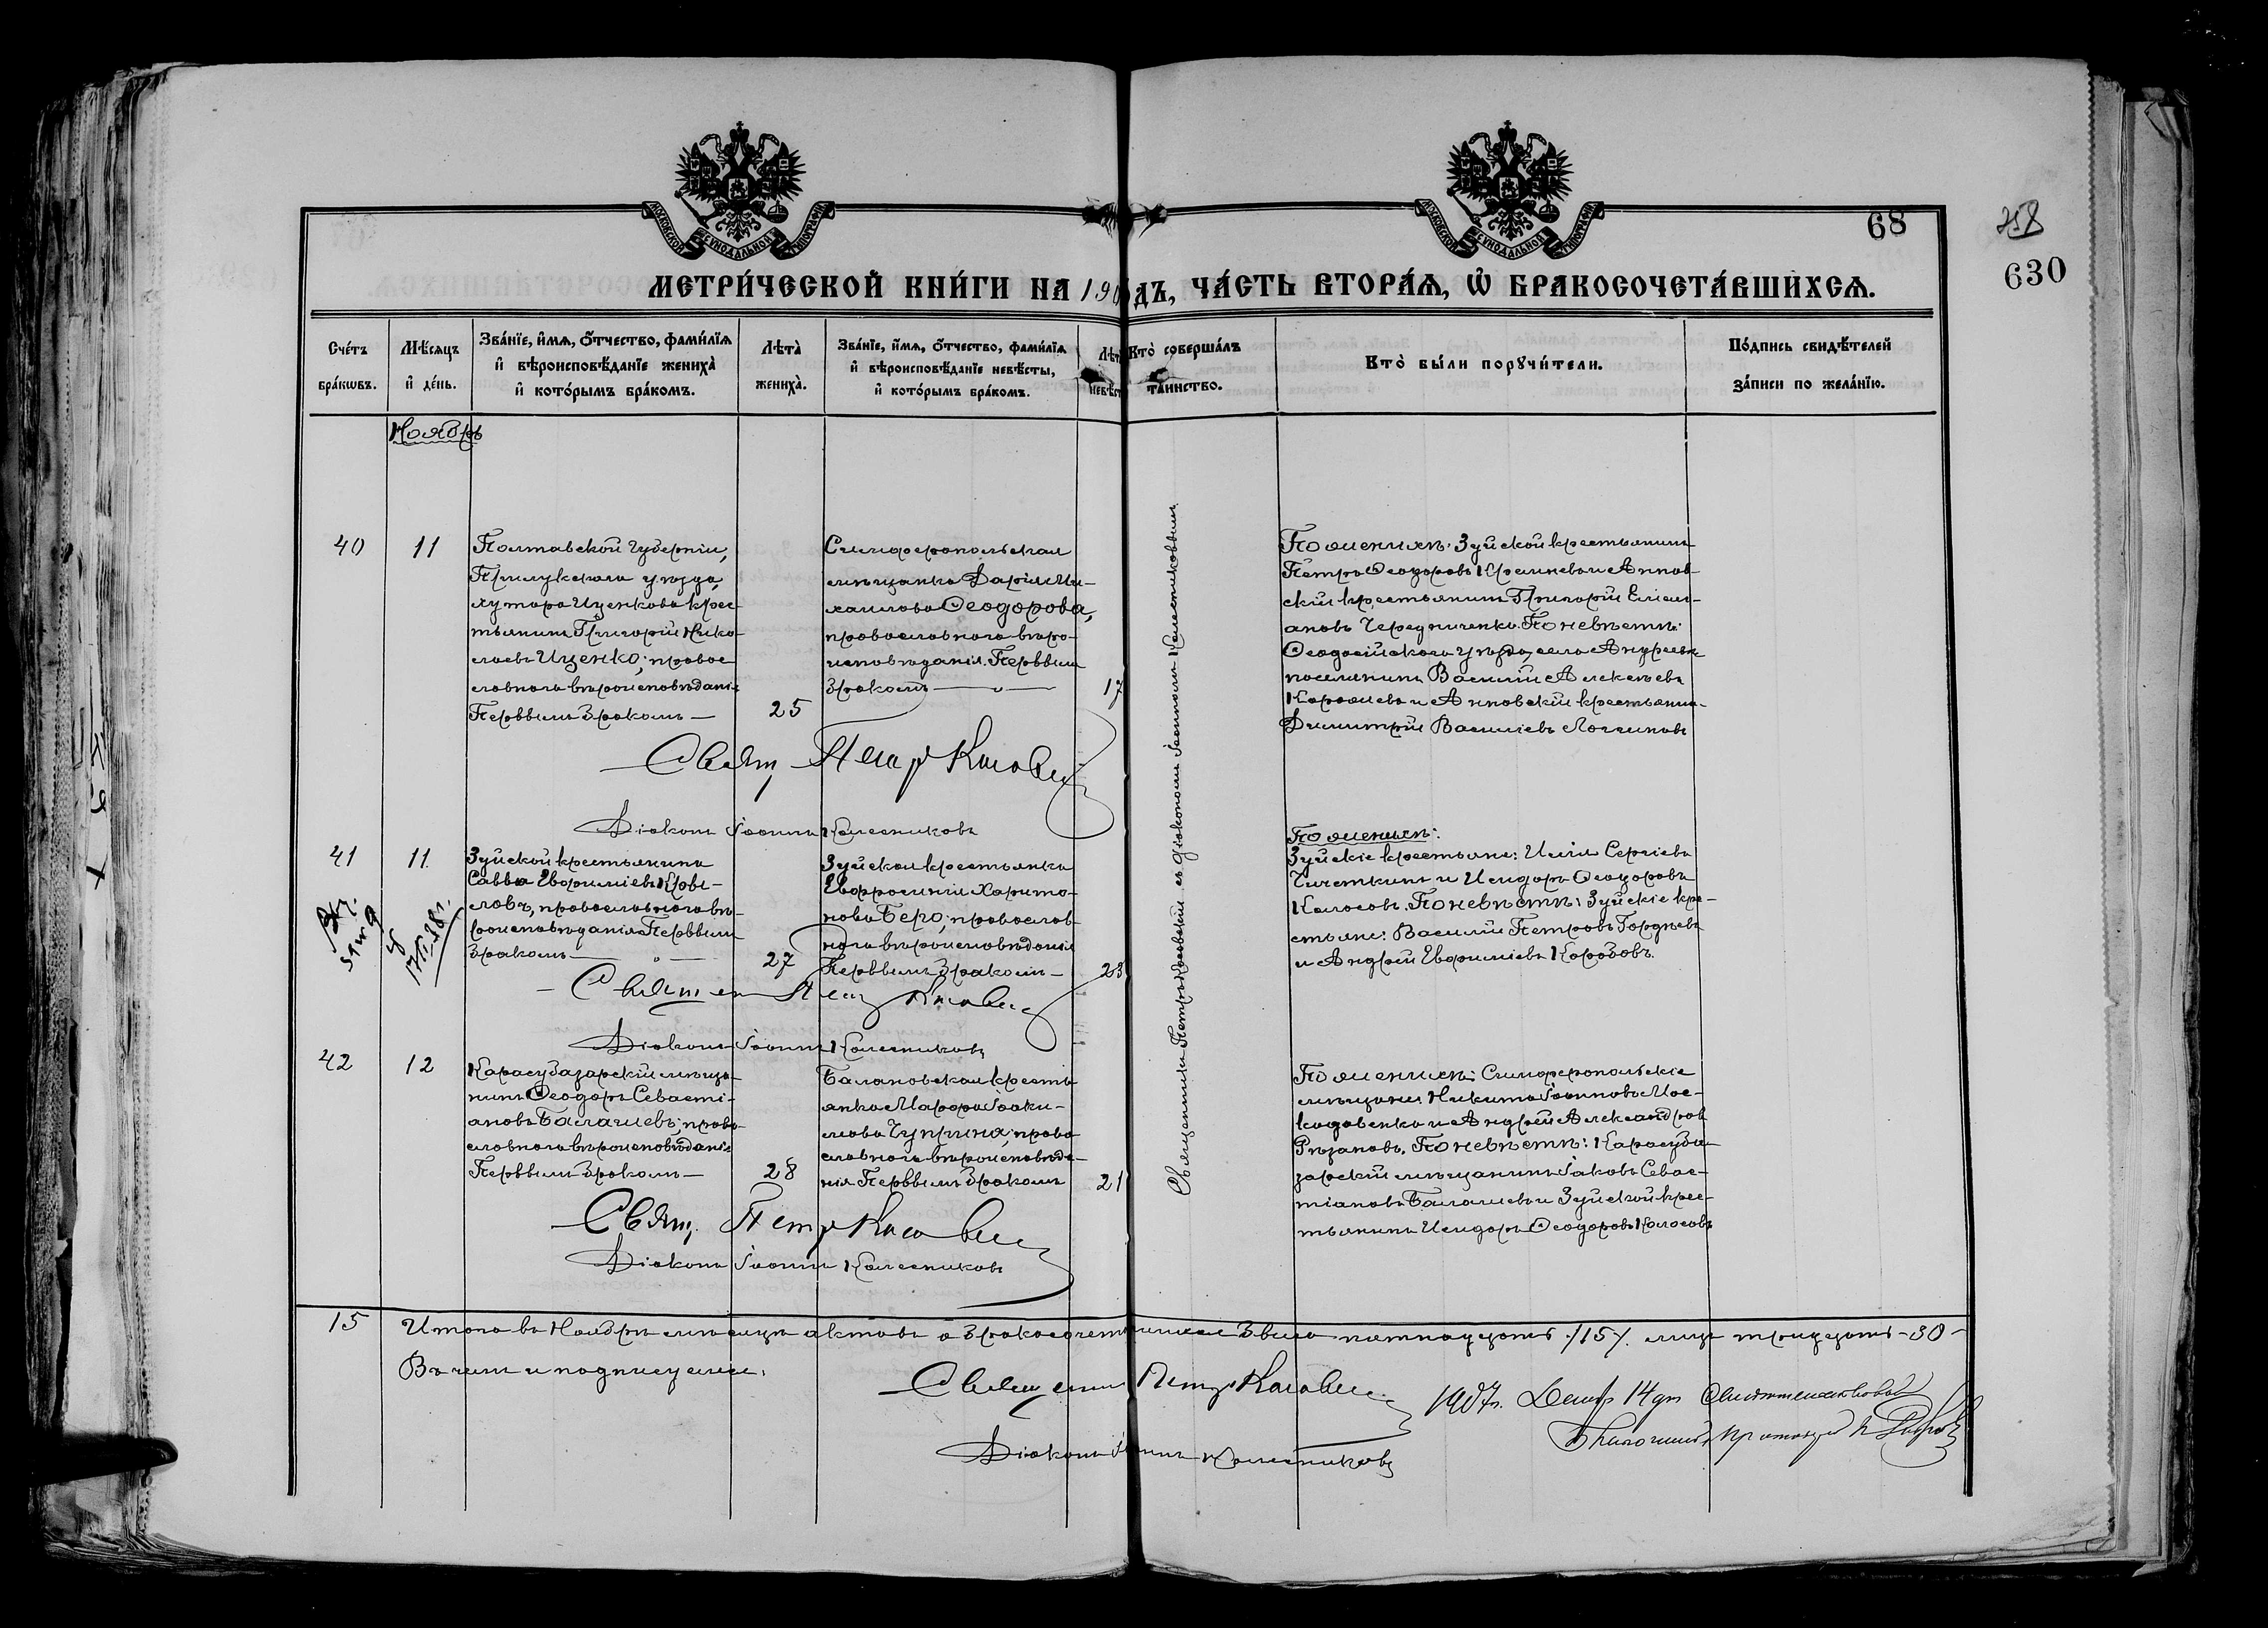 МОСКОВСКОЙ СѴНОДАЛЬНОЙ ТИПОГРАФІИ
МОСКОВСКОЙ СѴНОДАЛЬНОЙ ТИПОГРАФІИ
68
630
МЕТРИ́ЧЕСКОЙ КНИ́ГИ НА 190 ДЪ, ЧА́СТЬ ВТОРА́Ѧ, Ѽ БРАКОСОЧЕТА́ВШИХСѦ.
Сче́тъ бра́кѡвъ.
Мѣ́сѧцъ и҆ де́нь.
Зва́нїе, и҆́мѧ, ѻ҆́тчество, фамилїѧ и҆ вѣроисповѣ́данїе жениха̀ и҆ кото́рымъ бра́комъ.
Лѣта̀ жениха̀.
Зва́нїе, и҆́мѧ, ѻ҆́тчество, фамилїѧ и҆ вѣроисповѣ́данїе невѣ́сты, и҆ кото́рымъ бра́комъ.
Лѣта̀ невѣ́ст
Кто̀ соверша́лъ та́инство.
Кто̀ бы́ли порꙋчи́тели.
По́дпись свидѣ́телей за́писи по жела́нїю.
Ноябрь
40
11
Полтавской губерніи,
Прилукскаго уѣзда,
хутора Иценкова крес-
тьянинъ Григорій Нико-
лаевъ Иценко, правос
лавнаго вѣроисповѣданія
Первымъ бракомъ —
25
Симферопольская
мѣщанка Дарія Ми-
хаилова Ѳеодорова,
православнаго вѣро-
исповѣданія. Первым
бракомъ
17
Священникъ Петръ Косовскій съ діакономъ Іоанномъ Колесниковымъ
По женихѣ: Зуйской крестьянинъ
Петръ Ѳеодоровъ Кремневъ и Аннов
скій крестьянинъ Григорій Еліси-
ановъ Чередниченко. По невѣстѣ:
Ѳеодосійскаго уѣзда, села Андреевки
поселянинъ Василій Алексѣевъ
Королевъ и Анновскій крестьянин-
Димитрій Василіевъ Логвиновъ
Свящ Петр Косовскі
Діаконъ Іоаннъ Колесниковъ
41
11
Зуйской крестьянинъ
Савва Евфиміевъ Кови-
ловъ, православнаго вѣ-
роисповѣданія Первым
бракомъ
27
Зуйская крестьянка
Евфросинія Харито-
нова Беро, православ
наго вѣроисповѣданія
Первымъ бракомъ —
23
По женихѣ:
Зуйскіе крестьяне: Илія Сергіевъ
Чичеткинъ и Исидоръ Ѳеодоровъ
Колосовъ. По невѣстѣ: Зуйскіе кре-
стьяне: Василій Петровъ Гордѣевъ
и Андрей Евфиміевъ Коробовъ.
Священ Петр Косовскі
Діаконъ Іоаннъ Колесниковъ
42
12
Карасубазарскій мѣща-
нинъ Ѳеодоръ Севасті-
ановъ Балашевъ, право
славнаго вѣроисповѣданія
Первымъ бракомъ —
28
Балановская кресть
янка Марѳа Іоаки-
мова Чуприна, право
славнаго вѣроисповѣда-
нія Первымъ бракомъ
21
По женихѣ: Симферопольскіе
мѣщане Никита Іоанновъ Мос-
каленко и Андрей Александров
Рѣзановъ. По невѣстѣ: Карасуба-
зарскій мѣщанинъ Іаковъ Севас-
тіановъ Балашевъ и Зуйской крес-
тьянинъ Исидоръ Ѳеодоровъ Колосовъ
Свящ. Петр Косовскі
Діаконъ Іоаннъ Колесниковъ
15
Итого въ Ноябрѣ мѣсяцѣ актовъ о бракосочетавшихся было пятнадцать /15/. лицъ тридцать -30-
Въ чемъ и подписуемся:
Священни Петр Косовскі
Діаконъ Іоаннъ Колесниковъ
1907г. Декабр 14 дня Свидѣтельствовалъ
Благочинный Протоіерей